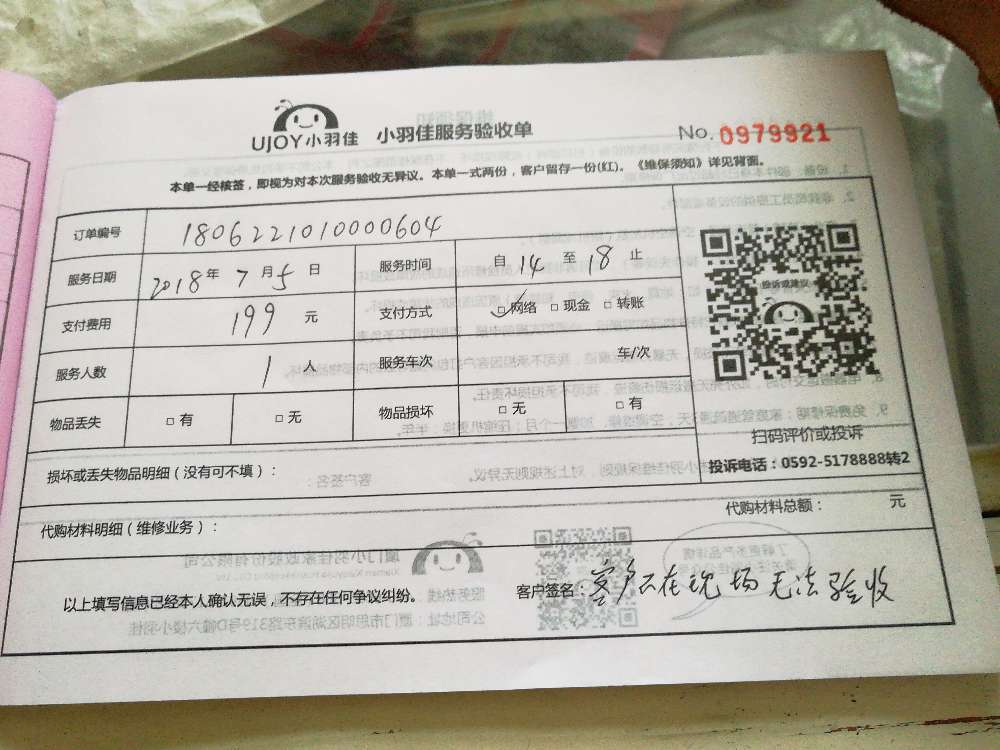 UJOY小羽佳 小羽佳服务验收单 No.0979921
本单一经核签，即视为对本次服务验收无异议。本单一式两份，客户留存一份(红)。《维保须知》详见背面。
订单编号 1806221010000604
服务日期 2018年7月5日 服务时间 自14至18止
支付费用 199元 支付方式 网络 现金 转账
投诉或建议
服务人数 1人 服务车次 车/次
物品丢失 有 无 物品损坏 无 有
扫码评价或投诉
投诉电话：0592-5178888转2
损坏或丢失物品明细（没有可不填）：
代购材料明细（维修业务）： 代购材料总额： 元
以上填写信息已经本人确认无误，不存在任何争议纠纷。 客户签名：客户不在现场无法验收